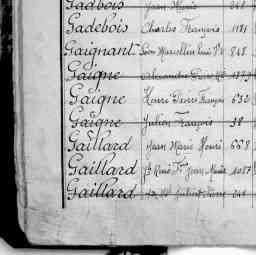 Gadbois Jean Marie
Gadebois Charles François 1181
Gaignant Marcellin 848
Gaigne Alexandre
Gaigne Pierre François 632
Gaigne Julien François 38
Gaillard Jean Marie Henri 658
Gaillard René Jean Marie 1087
Gaillard Julien